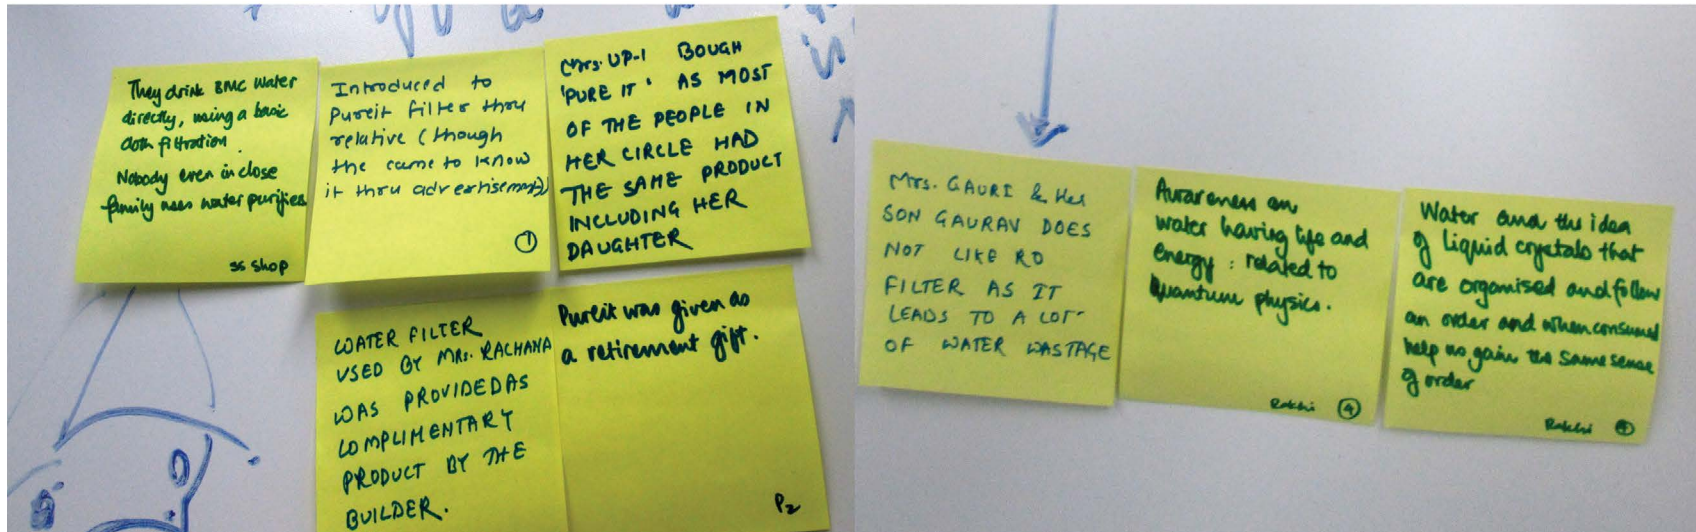 They drink BMC water
directly, using a basic
cloth filtration.
Nobody even in close
family uses water purifier
SS Shop
Introduced to
Pureit filter thru
relative (though
the came to know
it thru advertisement)
1
Mrs. UP-1 BOUGH
'PURE IT' AS MOST
OF THE PEOPLE IN
HER CIRCLE HAD
THE SAME PRODUCT
INCLUDING HER
DAUGHTER
WATER FILTER
USED BY MRS. RACHANA
WAS PROVIDED AS
COMPLIMENTARY
PRODUCT BY THE
BUILDER.
Pureit was given as
a retirement gift.
P2
Mrs. GAURI & Her
SON GAURAV DOES
NOT LIKE RO
FILTER AS IT
LEADS TO A LOT
OF WATER WASTAGE
Awareness on
water having life and
energy : related to
quantum physics.
Rakhi 4
Water and the idea
of liquid crystals that
are organised and follow
an order and when consumed
help us gain the same sense
of order
Rakhi 4